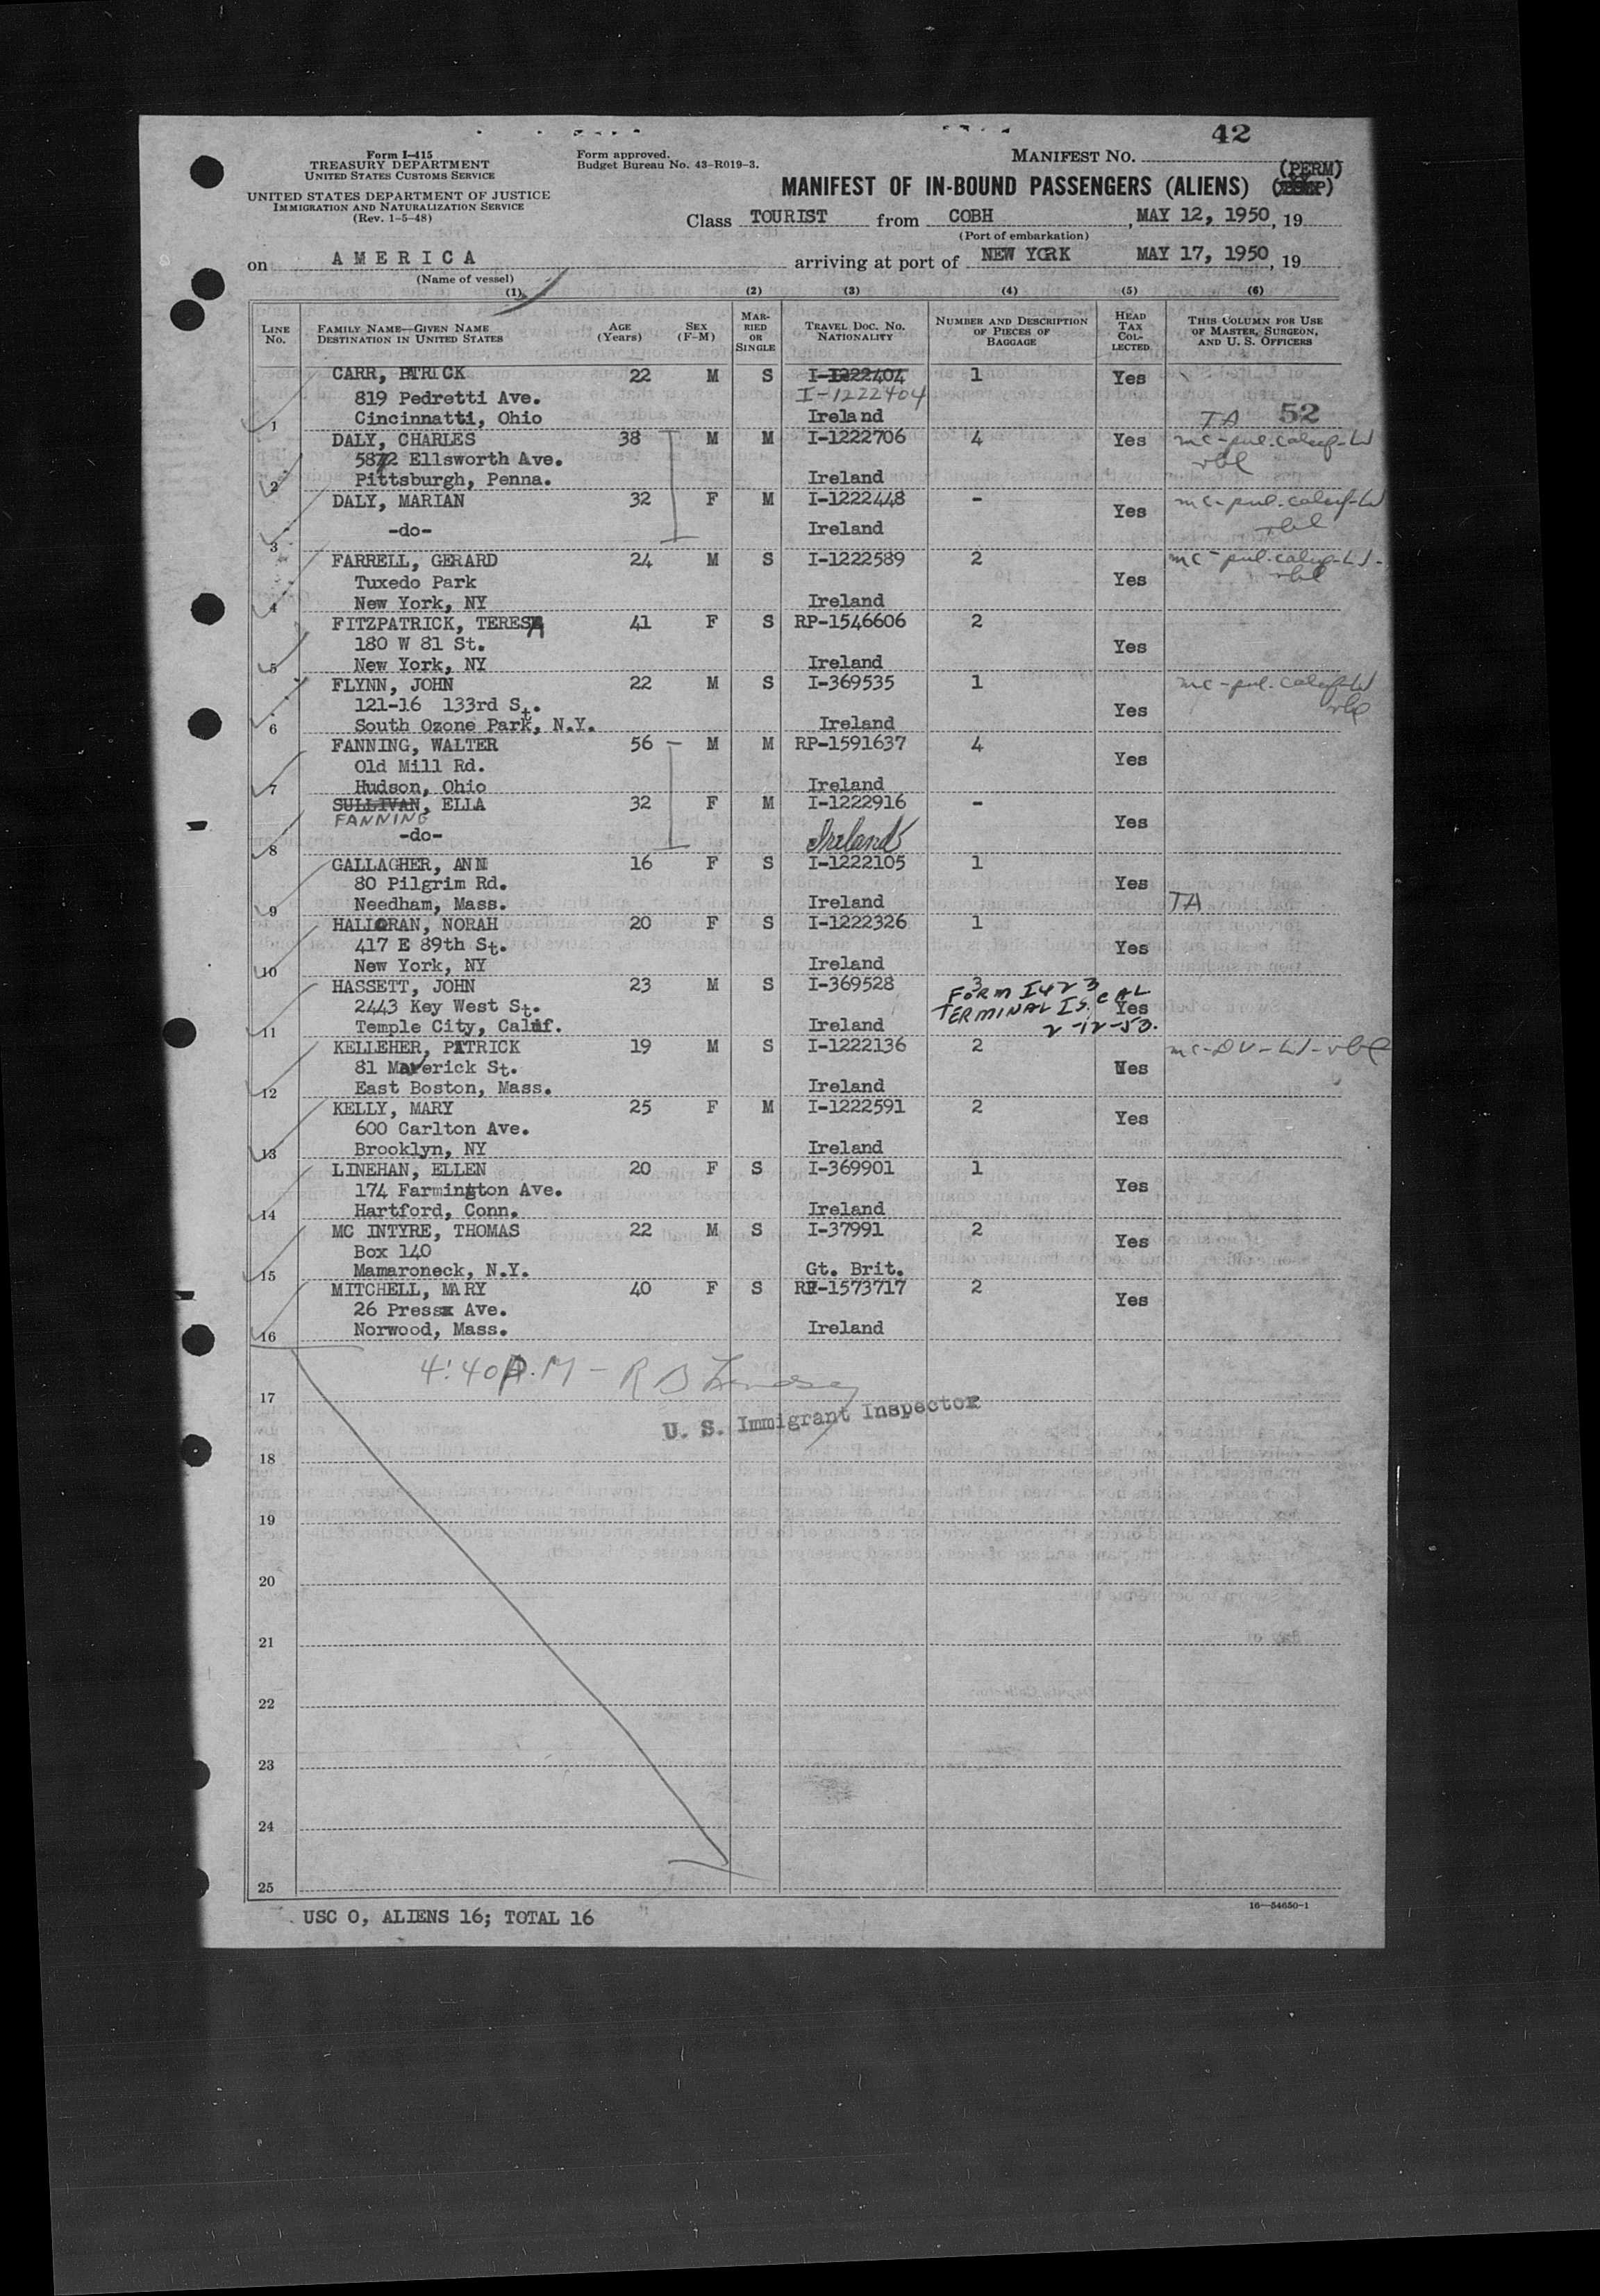 42
Form I-415
TREASURY DEPARTMENT
UNITED STATES CUSTOMS SERVICE
UNITED STATES DEPARTMENT OF JUSTICE
IMMIGRATION AND NATURALIZATION SERVICE
(Rev. 1-5-48)
Form approved.
Budget Bureau No. 43-R019-3.
MANIFEST NO.
MANIFEST OF IN-BOUND PASSENGERS (ALIENS) (PERM)
Class TOURIST from COBH, MAY 12, 1950, 19
(Port of embarkation)
on AMERICA arriving at port of NEW YORK MAY 17, 1950, 19
(Name of vessel)
(1) (2) (3) (4) (5) (6)
LINE NO. FAMILY NAME—GIVEN NAME DESTINATION IN UNITED STATES AGE (Years) SEX (F-M) MARRIED OR SINGLE TRAVEL DOC. NO. NATIONALITY NUMBER AND DESCRIPTION OF PIECES OF BAGGAGE HEAD TAX COLLECTED THIS COLUMN FOR USE OF MASTER, SURGEON, AND U. S. OFFICERS
CARR, PATRICK 22 M S I-1222404 1 Yes
819 Pedretti Ave. I-1222404
1 Cincinnatti, Ohio Ireland TA 52
DALY, CHARLES 38 M M I-1222706 4 Yes mc-pul.calcif-LJ
5872 Ellsworth Ave. rbl
2 Pittsburgh, Penna. Ireland
DALY, MARIAN 32 F M I-1222448 - Yes mc-pul.calcif-LJ
3 -do- Ireland rbl
FARRELL, GERARD 24 M S I-1222589 2 mc-pul.calcif-LJ-
Tuxedo Park Yes rbl
4 New York, NY Ireland
FITZPATRICK, TERESA 41 F S RP-1546606 2
180 W 81 St. Yes
5 New York, NY Ireland
FLYNN, JOHN 22 M S I-369535 1 mc-pul.calcif-LJ
121-16 133rd St. Yes rbl
6 South Ozone Park, N.Y. Ireland
FANNING, WALTER 56 M M RP-1591637 4
Old Mill Rd. Yes
7 Hudson, Ohio Ireland
SULLIVAN, ELLA 32 F M I-1222916 -
FANNING Yes
8 -do- Ireland
GALLAGHER, ANN 16 F S I-1222105 1
80 Pilgrim Rd. Yes
9 Needham, Mass. Ireland TA
HALLORAN, NORAH 20 F S I-1222326 1
417 E 89th St. Yes
10 New York, NY Ireland
HASSETT, JOHN 23 M S I-369528 3 FORM I423
2443 Key West St. TERMINAL IS. CAL Yes
11 Temple City, Calif. Ireland 2-12-53.
KELLEHER, PATRICK 19 M S I-1222136 2 mc-DV-LJ-rbl
81 Maverick St. Yes
12 East Boston, Mass. Ireland
KELLY, MARY 25 F M I-1222591 2
600 Carlton Ave. Yes
13 Brooklyn, NY Ireland
LINEHAN, ELLEN 20 F S I-369901 1
174 Farmington Ave. Yes
14 Hartford, Conn. Ireland
MC INTYRE, THOMAS 22 M S I-37991 2
Box 140 Yes
15 Mamaroneck, N.Y. Gt. Brit.
MITCHELL, MARY 40 F S RP-1573717 2
26 Press Ave. Yes
16 Norwood, Mass. Ireland
4:40 P.M - R B Lindsay
17
U. S. Immigrant Inspector
18
19
20
21
22
23
24
25
16—54650-1
USC 0, ALIENS 16; TOTAL 16